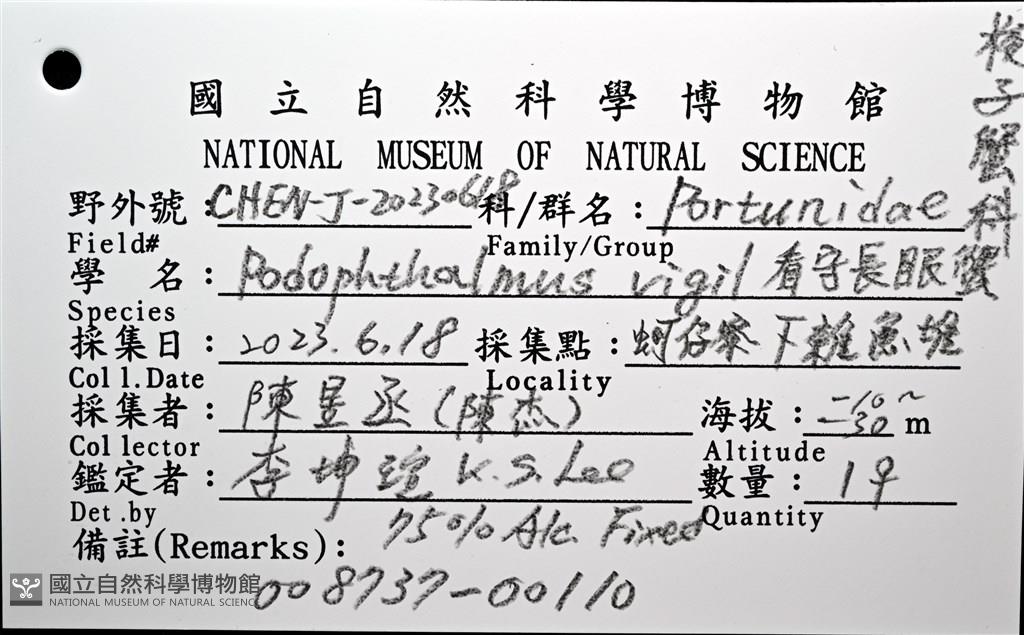 國立自然科學博物館
NATIONAL MUSEUM OF NATURAL SCIENCE
梭子蟹科
野外號:CHEN-J-20230618 科/群名:Portunidae
Field# Family/Group
學 名:Podophthalmus vigil 看守長眼蟹
Species
採集日:2023.6.18 採集點:蚵仔寮下雜魚堆
Coll.Date Locality
採集者:陳昱丞(陳杰) 海拔:-10~-30 m
Collector Altitude
鑑定者:李坤瑄 K.S.Lee 數量:1♀
Det.by Quantity
備註(Remarks): 75% Alc. Fixed
008737-00110
國立自然科學博物館
NATIONAL MUSEUM OF NATURAL SCIENCE